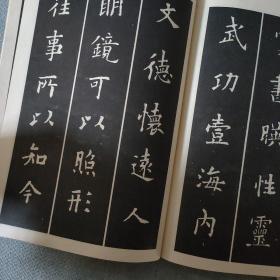 書陳性靈
武功壹海內
文德懷遠人
明鏡可以照形
往事所以知今